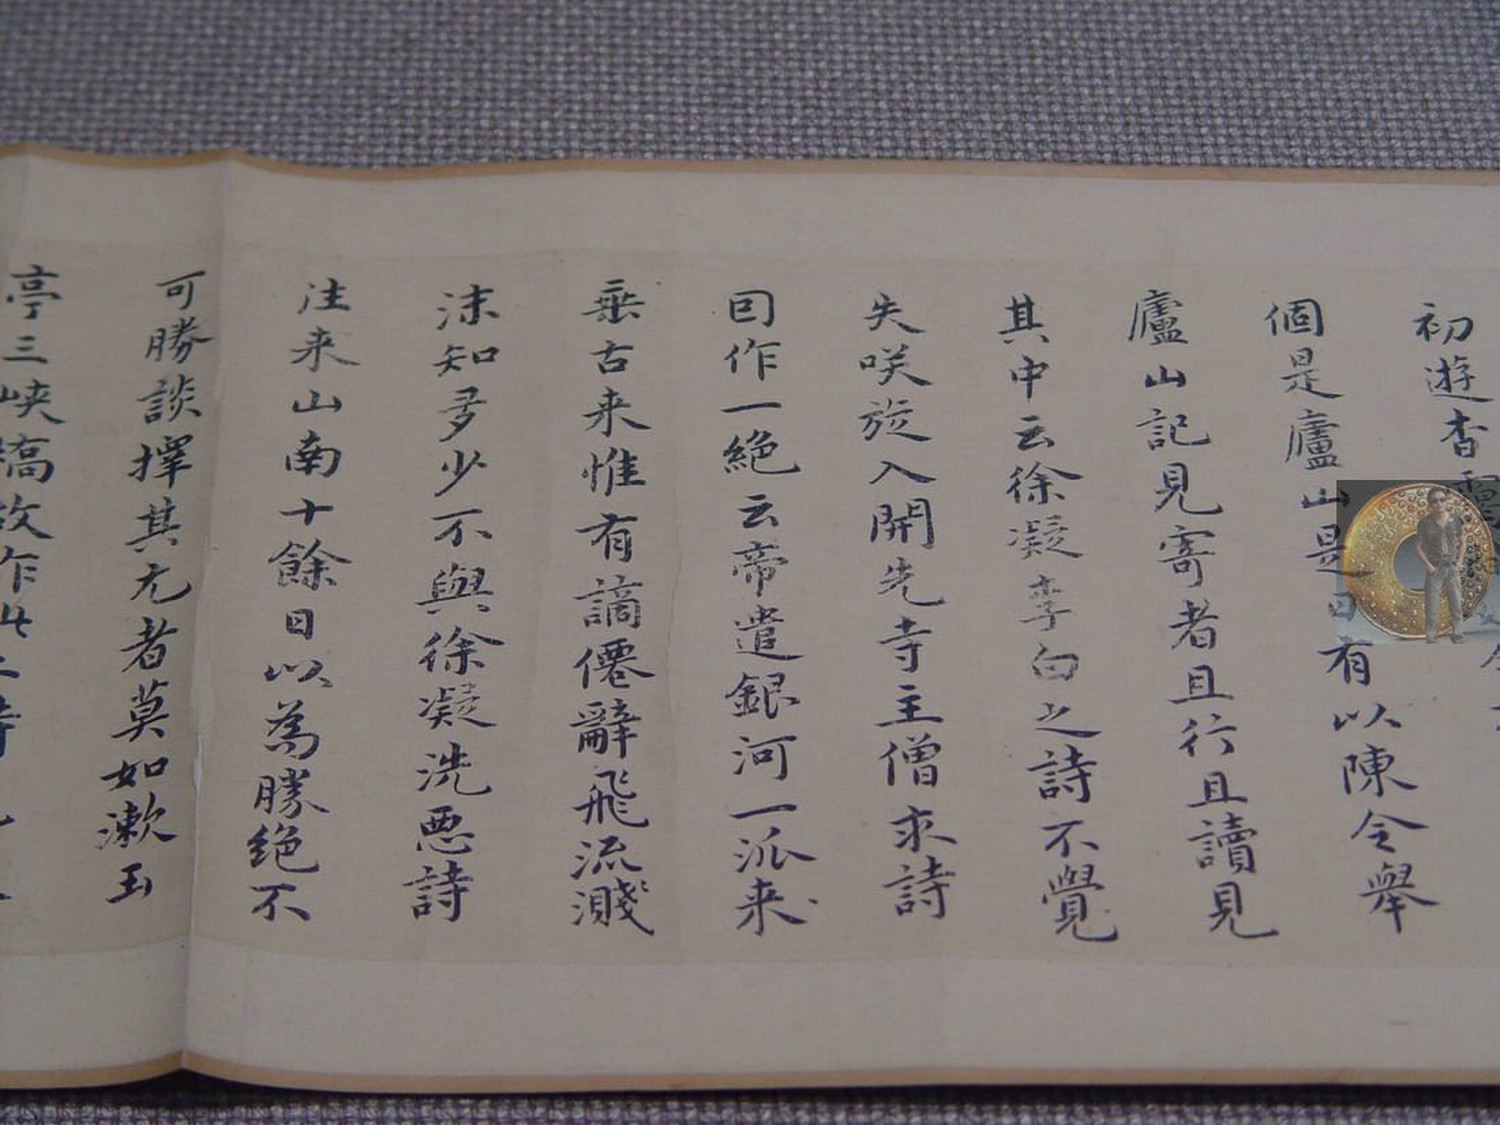 初遊杳靄
個是廬山是日有以陳令舉
廬山記見寄者且行且讀見
其中云徐凝李白之詩不覺
失咲旋入開先寺主僧求詩
囙作一絕云帝遣銀河一派来
垂古来惟有謫僊辭飛流濺
沫知多少不與徐凝洗惡詩
往来山南十餘日以為勝絕不
可勝談擇其尤者莫如漱玉
亭三峽橋故作此二詩